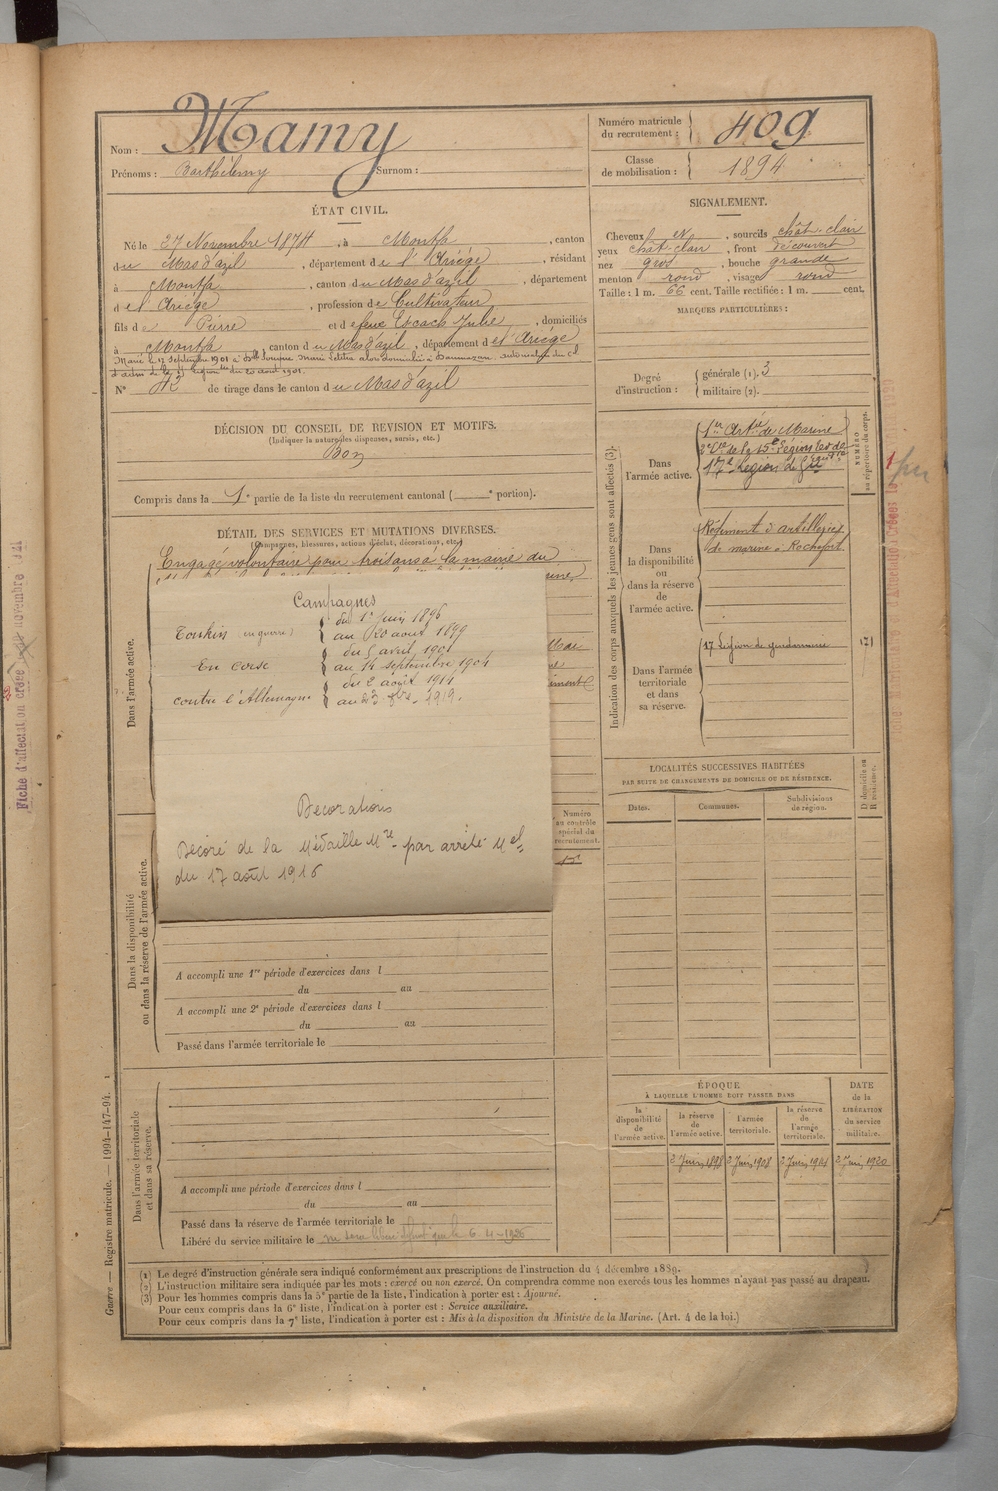 Nom : Mamy
Prénoms : Barthélemy Surnom :
Numéro matricule du recrutement : 409
Classe de mobilisation : 1894
ÉTAT CIVIL.
Né le 27 Novembre 1874, à Montfa, canton
du Mas d'azil, département de l'Ariége, résidant
à Montfa, canton du Mas d'azil, département
de l'Ariége, profession de Cultivateur
fils de Pierre et de feue Escach Julie, domiciliés
à Montfa, canton du Mas d'azil, département de l'Ariége
Marié le 17 Septembre 1901 à Dlle Marie Letitia domiciliée à Daumazan, autorisation du Cl
d'adm de la légion du 20 août 1901.
N° 42 de tirage dans le canton du Mas d'azil
SIGNALEMENT.
Cheveux et, sourcils chât. clair
yeux chât. clair, front découvert
nez gros, bouche grande
menton rond, visage rond
Taille : 1 m. 66 cent. Taille rectifiée : 1 m. cent.
MARQUES PARTICULIÈRES :
Degré d'instruction : générale (1). 3
militaire (2).
DÉCISION DU CONSEIL DE REVISION ET MOTIFS.
(Indiquer la nature des dispenses, sursis, etc.)
Bon
Compris dans la 1e partie de la liste du recrutement cantonal ( e portion).
DÉTAIL DES SERVICES ET MUTATIONS DIVERSES.
(Campagnes, blessures, actions d'éclat, décorations, etc.)
Engagé volontaire pour trois ans à la mairie du
Campagnes
Tonkin (en guerre) du 1er Juin 1896
au 20 août 1899
En Corse du 5 avril 1901
au 14 septembre 1904
contre l'Allemagne du 2 août 1914
au 23 1919.
Décorations
Décoré de la Médaille Mre par arrêté Mel
du 17 août 1916
Dans l'armée active.
Dans la disponibilité ou dans la réserve de l'armée active.
Numéro au contrôle spécial du recrutement.
A accompli une 1re période d'exercices dans l
du au
A accompli une 2e période d'exercices dans l
du au
Passé dans l'armée territoriale le
Dans l'armée territoriale et dans sa réserve.
A accompli une période d'exercices dans l
du au
Passé dans la réserve de l'armée territoriale le
Libéré du service militaire le ne sera libéré que le 6-4-1926
Indication des corps auxquels les jeunes gens sont affectés (3).
NUMÉRO au répertoire du corps.
Dans l'armée active.
1er Artie de Marine
2e Cie de la 15e Légion
17e Légion de Gie
Dans la disponibilité ou dans la réserve de l'armée active.
Régiment d'artillerie
de marine à Rochefort
Dans l'armée territoriale et dans sa réserve.
17 Légion de gendarmerie
LOCALITÉS SUCCESSIVES HABITÉES
PAR SUITE DE CHANGEMENTS DE DOMICILE OU DE RÉSIDENCE.
Dates. Communes. Subdivisions de région. D domicile ou R résidence.
ÉPOQUE
À LAQUELLE L'HOMME DOIT PASSER DANS
la disponibilité de l'armée active. la réserve de l'armée active. l'armée territoriale. la réserve de l'armée territoriale.
DATE de la LIBÉRATION du service militaire.
2 Juin 1898 2 Juin 1908 2 Juin 1914 2 Juin 1920
(1) Le degré d'instruction générale sera indiqué conformément aux prescriptions de l'instruction du 4 décembre 1889.
(2) L'instruction militaire sera indiquée par les mots : exercé ou non exercé. On comprendra comme non exercés tous les hommes n'ayant pas passé au drapeau.
(3) Pour les hommes compris dans la 5e partie de la liste, l'indication à porter est : Ajourné.
Pour ceux compris dans la 6e liste, l'indication à porter est : Service auxiliaire.
Pour ceux compris dans la 7e liste, l'indication à porter est : Mis à la disposition du Ministre de la Marine. (Art. 4 de la loi.)
Guerre — Registre matricule. — 1994-147-94.